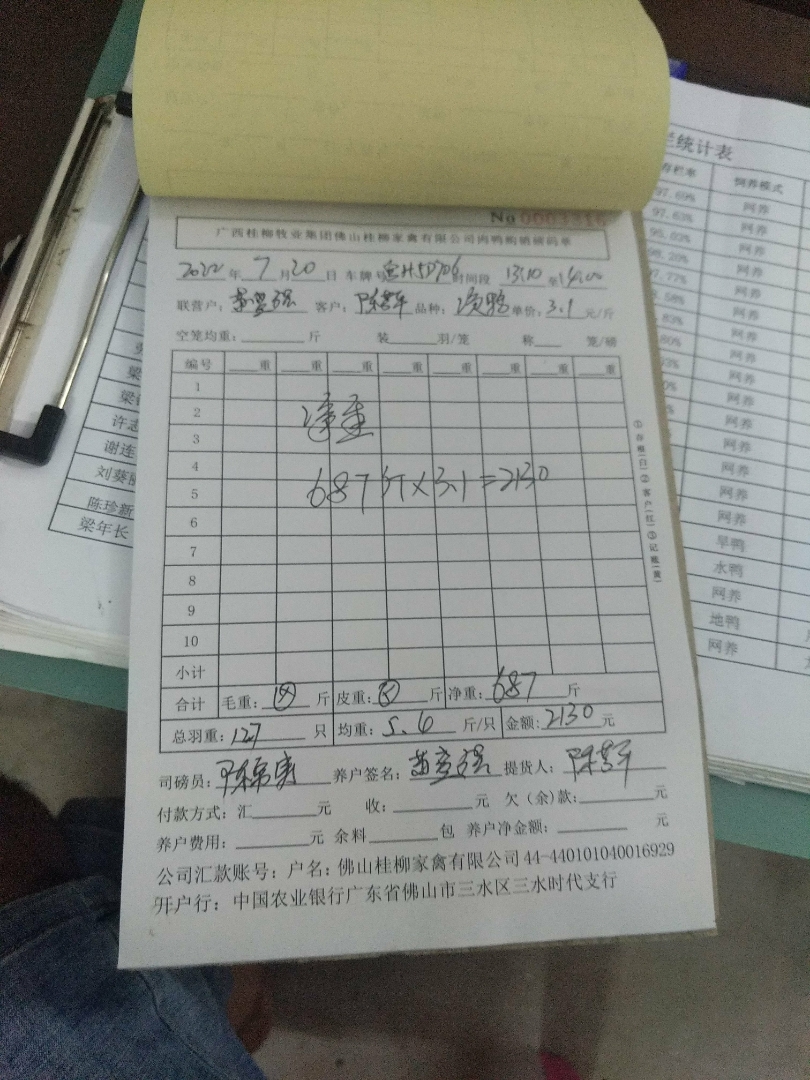 No 0003316
广西桂柳牧业集团佛山桂柳家禽有限公司肉鸭购销磅码单
2022 年 7 月 20 日 车牌号 H5D706 时间段 13:10 至 14:00
联营户: 客户: 陈 品种: 单价: 3.1 元/斤
空笼均重: 斤 装 羽/笼 称 笼/磅
编号 重 重 重 重 重 重 重 重
1
2
3
净重
4
5
687斤×3.1=2130
6
7
8
9
10
小计
合计 毛重: 斤 皮重: 斤 净重: 687 斤
总羽重: 127 只 均重: 5.4 斤/只 金额: 2130 元
司磅员: 陈 养户签名: 提货人: 陈
付款方式: 汇 元 收: 元 欠(余)款: 元
养户费用: 元 余料 包 养户净金额: 元
公司汇款账号: 户名: 佛山桂柳家禽有限公司 44-440101040016929
开户行: 中国农业银行广东省佛山市三水区三水时代支行
①存根(白)②客户(红)③记账(黄)
统计表
存栏率 饲养模式
97.69% 网养
97.63% 网养
95.02% 网养
98.20% 网养
97.77% 网养
网养
网养
网养
网养
网养
网养
网养
网养
旱鸭
水鸭
网养
地鸭
网养
梁
许志
谢连
刘葵
陈珍新
梁年长